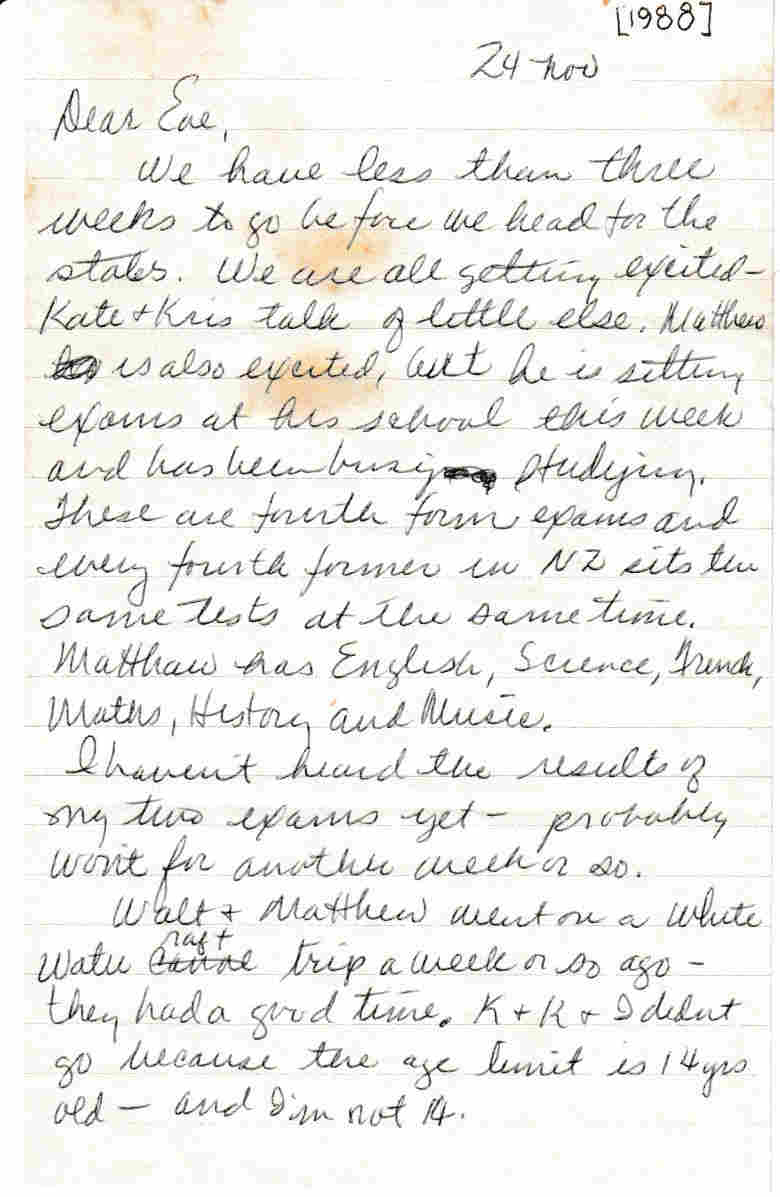 [1988]
24 Nov
Dear Eve,
We have less than three
weeks to go before we head for the
states. We are all getting excited -
Kate & Kris talk of little else. Matthew
is also excited, but he is sitting
exams at his school this week
and has been busy studying.
These are fourth form exams and
every fourth former in NZ sits the
same tests at the same time.
Matthew has English, Science, French,
Maths, History and Music.
I haven't heard the results of
my two exams yet - probably
won't for another week or so.
Walt & Matthew went on a white
water canoe raft trip a week or so ago -
they had a good time. K & K & I didn't
go because the age limit is 14 yrs
old - and I'm not 14.